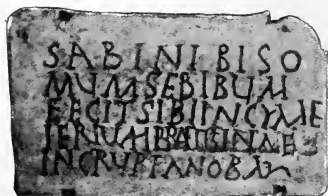 SABINI BISO
MUMSEBIBUM
FECITSIBIINCYME
TERIUMBALBINAE
INCRUPTANOBA